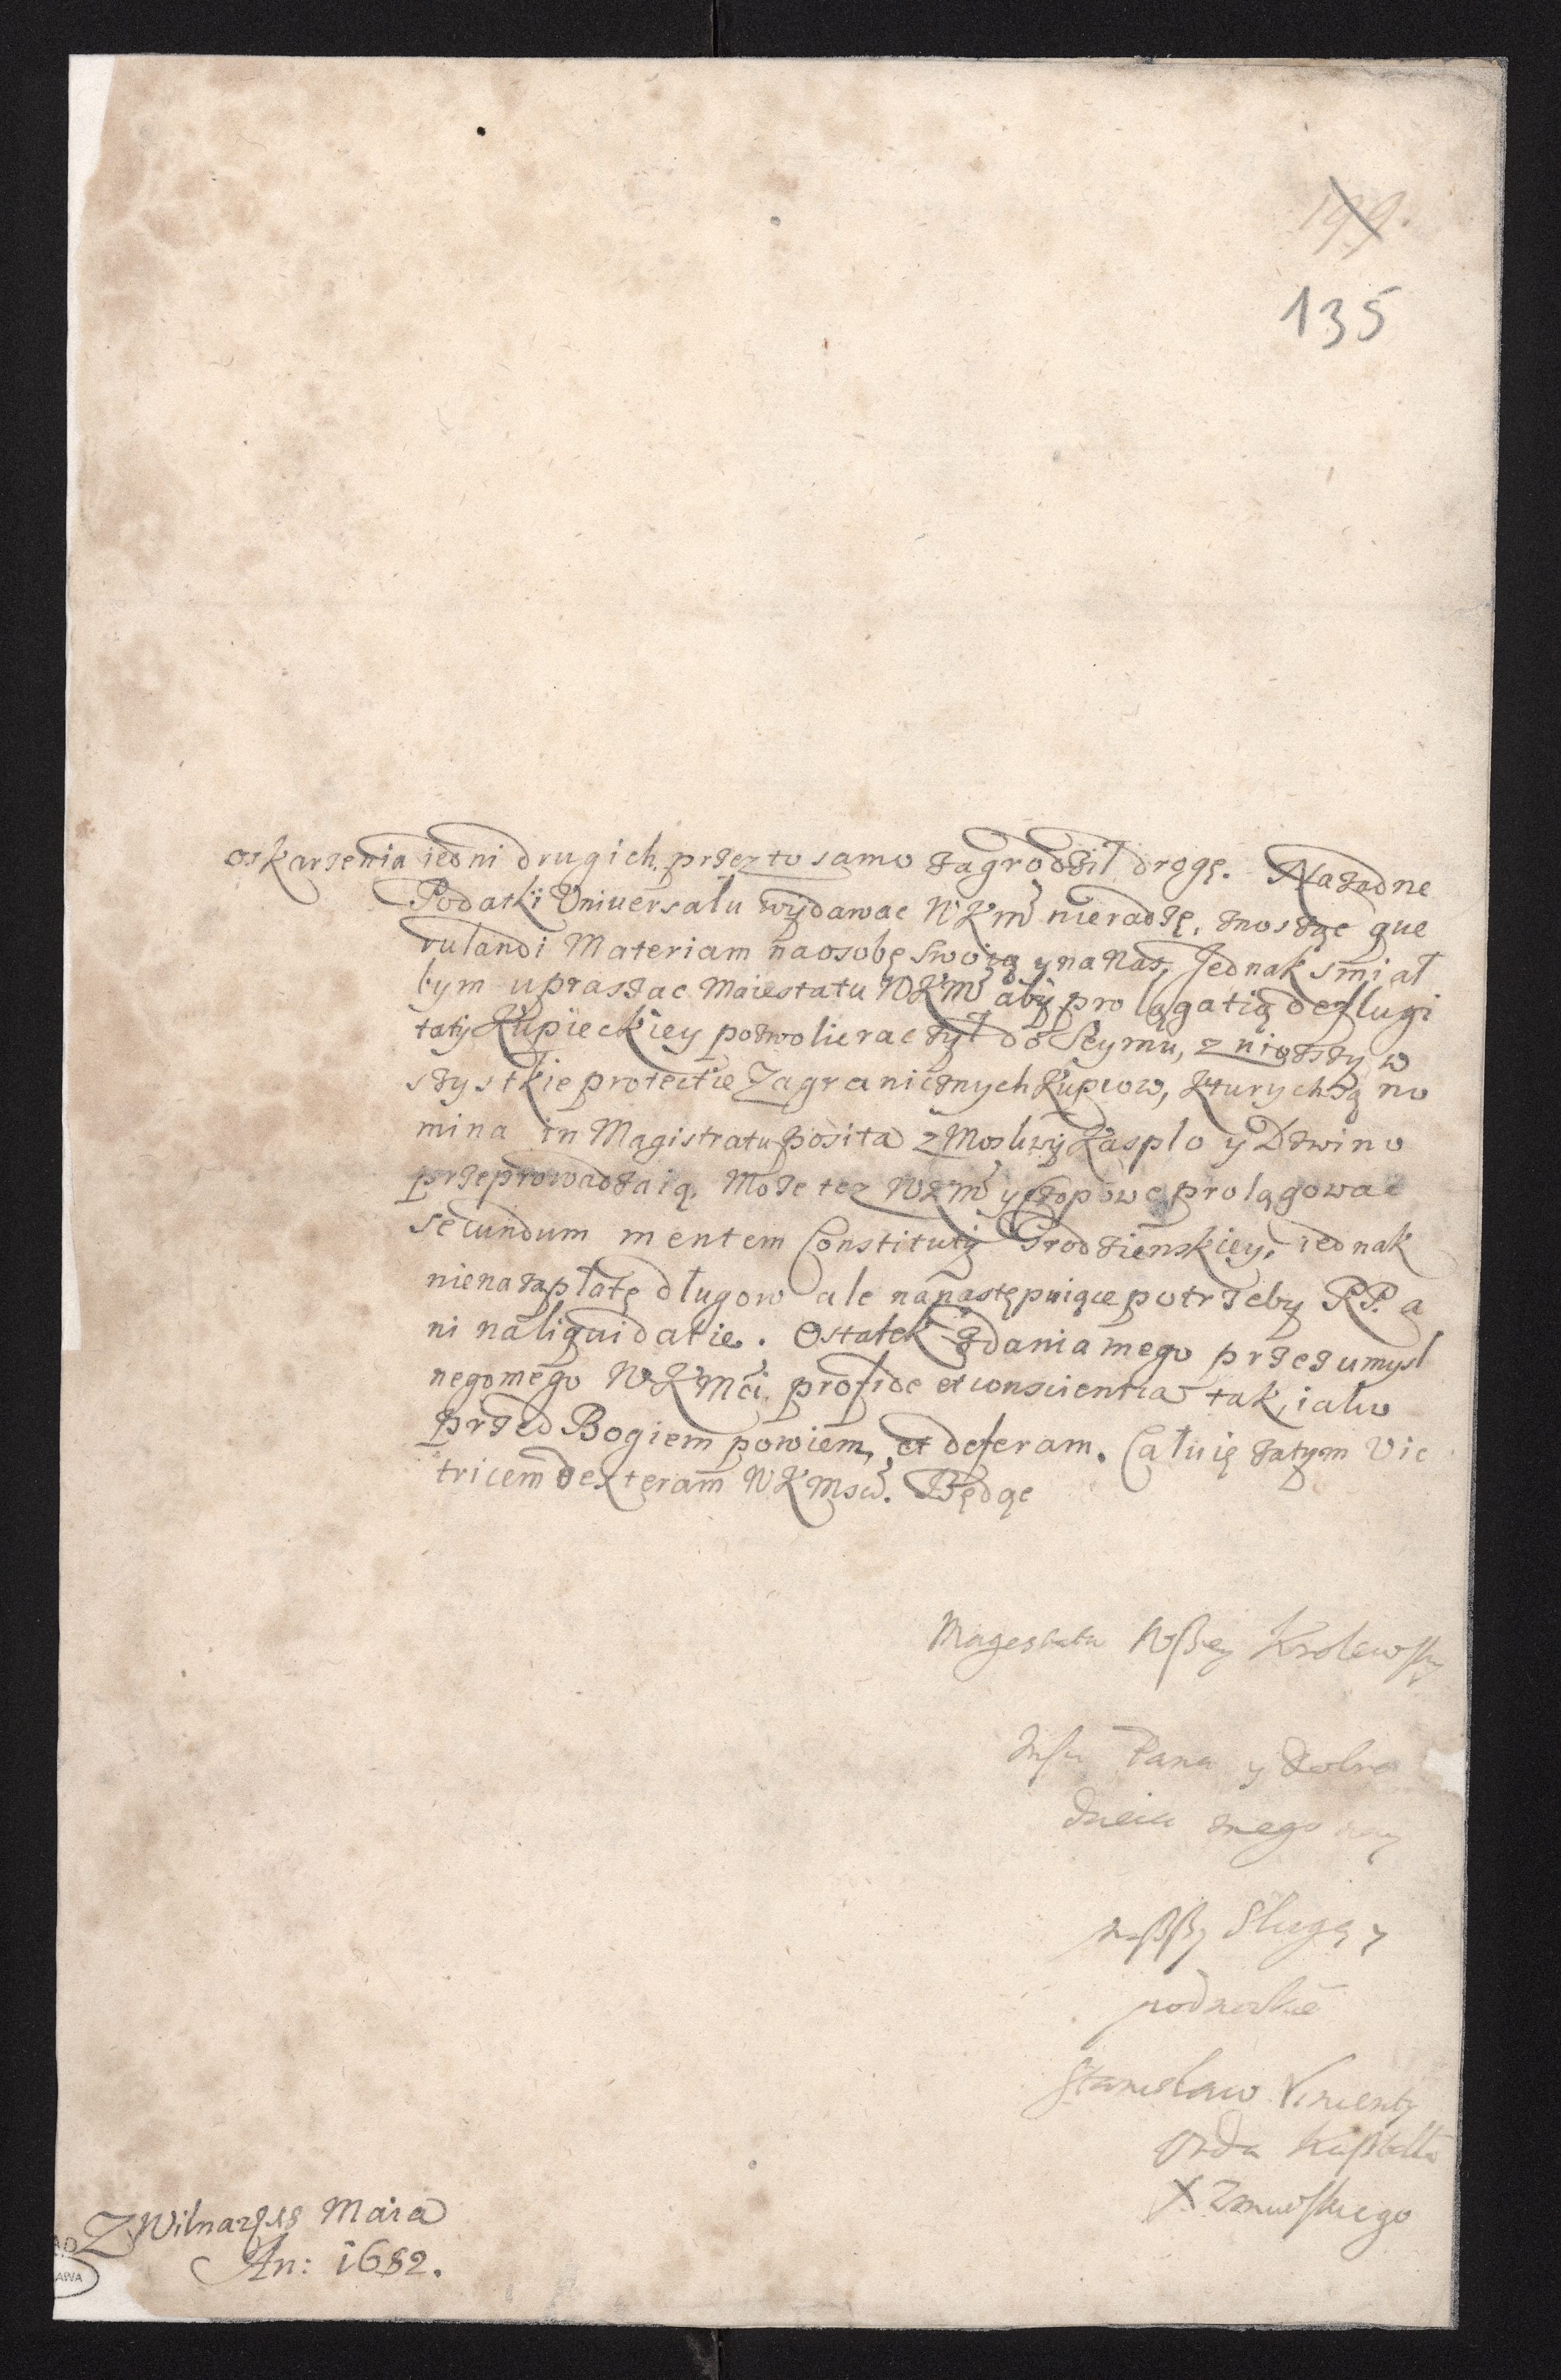 199.
135
oskarżenia iedni drugich, przez to samo zagrodził drogę. Na żadne
Podatki Uniuersału wydawac WKM nieradzę, znosząc que
rulandi Materiam na osobę swoią y na Nas, Jednak smiał
bym upraszac Maiestatu WKM aby prolągatią deflugi
taty Kupieckiey pozwolic raczył do Seymu, z nią
szystkie protectie Zagranicznych Kupcow, kturych są no
mina in Magistratu posita z Moskwy Kasplo y Dzwino
przeprowadzaią. Może tez WKM y prolągowac
secundum mentem Constituty Grodzienskiey, iednak
nie na zapłatę długow ale na następuiące potrzeby RP. a
ni na liquidatie. Ostatek zdania mego przez umysl
nego mego WKMci pro fide et conscientia tak, iako
przed Bogiem powiem, et deferam. Całuię zatym Vic
tricem dexteram WKMsci. Będąc
Magestatu WSzey Krolewsky
Pana y Dobro
dzieia mego
Sługą y
podnozkie
Stanisław Vincenty
Orda
X Zmudskiego
Z Wilna 18 Maia
An: 1682.